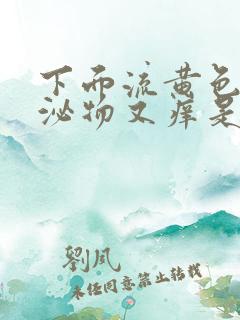 下面流黄色
泌物又痒是
劉凤
未经同意禁止转载